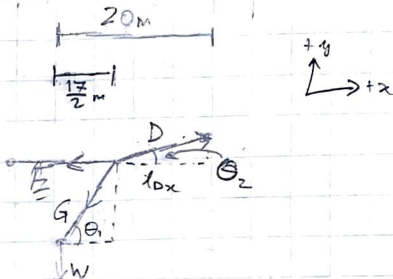 20m
17/2 m
+y
+x
D
E
l_Dx
θ₂
G
θ₁
W